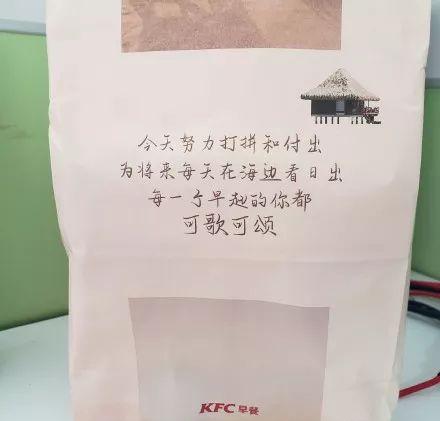 今天努力打拼和付出
为将来每天在海边看日出
每一个早起的你都
可歌可颂
KFC 早餐